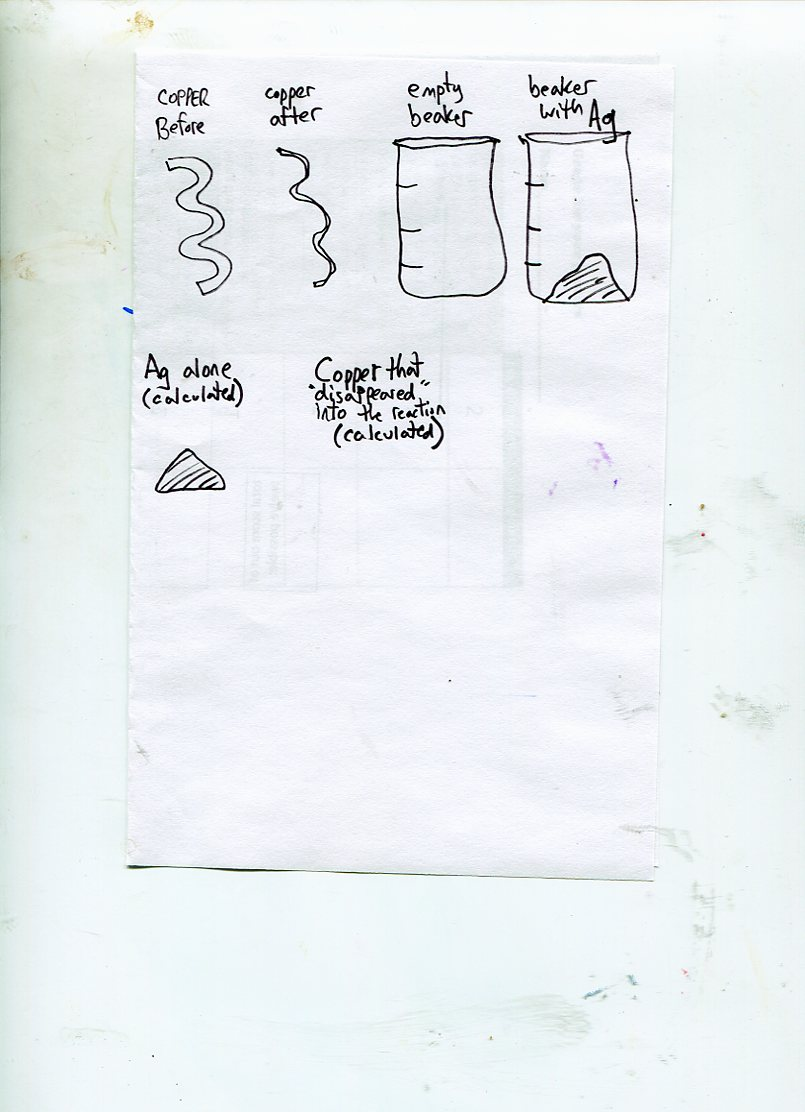 COPPER
Before
copper
after
empty
beaker
beaker
with Ag
Ag alone
(calculated)
Copper that
"disappeared"
into the reaction
(calculated)